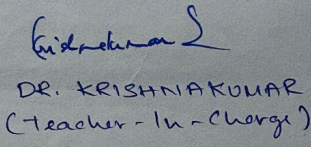 Krishnakumar S
DR. KRISHNAKUMAR
(Teacher-In-Charge)